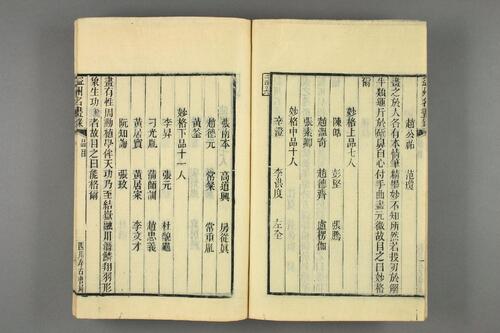 趙公祐 范瓊
畫之於人各有本情筆精墨妙不知所然若投刃於解
牛類運斤於斫鼻自心付手曲盡元微故目之曰妙格
爾
妙格上品七人
陳皓 彭堅 張騰
趙溫奇 趙德齊 盧楞伽
張素卿
妙格中品十人
辛澄 李洪度 左全
張南本 高道興 房從真
趙德元 常粲 常重胤
黃筌
妙格下品十一人
李昇 張元 杜齯龜
刁光胤 蒲師訓 趙忠義
黃居寶 黃居寀 李文才
阮知誨 張玫
畫有性周動植學侔天功乃至結嶽融川潛鱗翔羽形
象生功者故目之曰能格爾
益州名畫錄 品目 四川存古書局